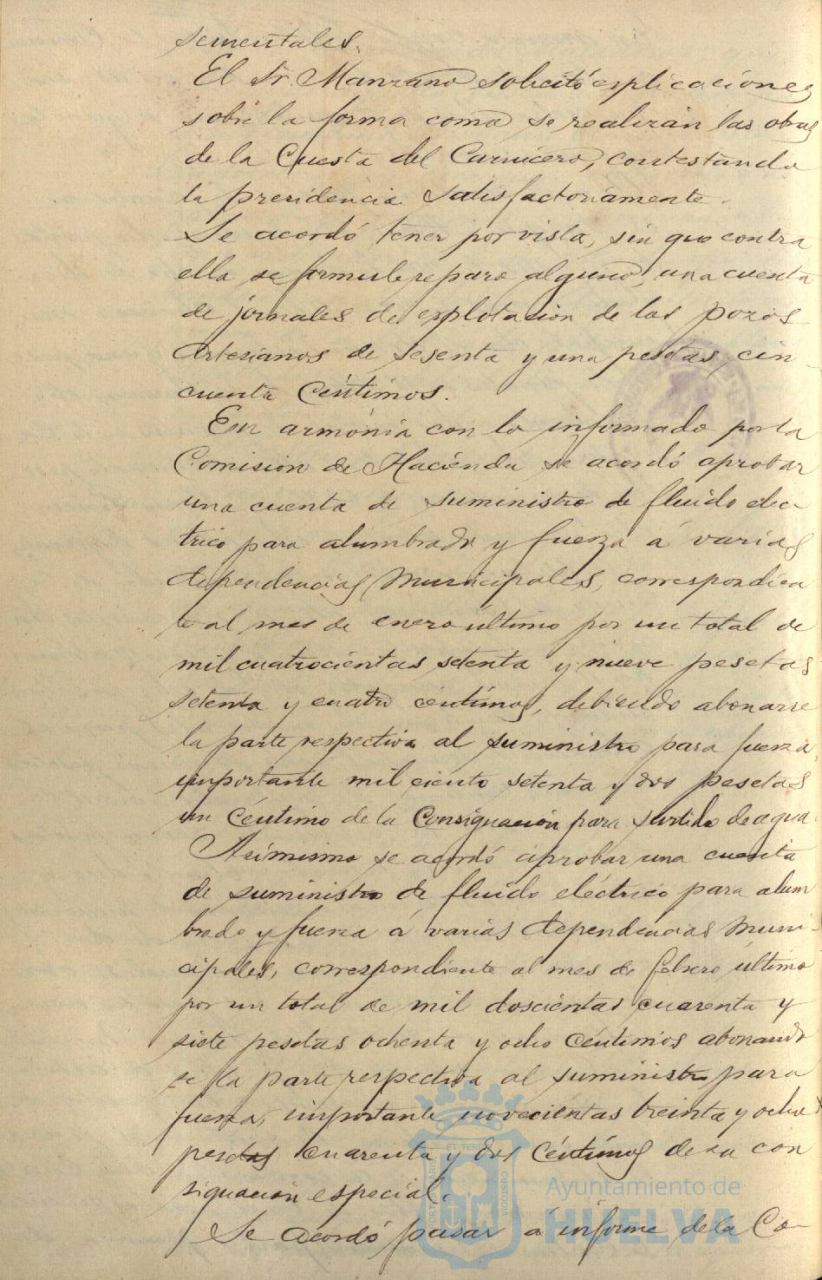 sementales.
El Sr. Manzano solicitó explicaciones
sobre la forma como se realizan las obras
de la Cuesta del Carnicero, contestando
la presidencia satisfactoriamente.
Se acordó tener por vista, sin que contra
ella se formule reparo alguno, una cuenta
de jornales de explotación de los pozos
Artesianos de sesenta y una pesetas, cin-
cuenta Céntimos.
En armónia con lo informado por la
Comisión de Haciénda se acordó aprobar
una cuenta de suministro de fluido elec
trico para alumbrado y fuerza á varias
dependencias Municipales, correspondien
te al mes de enero último por un total de
mil cuatrocientas setenta y nueve pesetas
setenta y cuatro céntimos, debiendo abonarse
la parte respectiva al suministro para fuerza,
importante mil ciento setenta y dos pesetas
un Céntimo de la Consignación para surtido de agua.
Asimismo se acordó aprobar una cuenta
de suministro de fluido eléctrico para alum
brado y fuerza á varias dependencias Muni-
cipales, correspondiente al mes de febrero último
por un total de mil doscientas cuarenta y
siete pesetas ochenta y ocho Céntimos abonando
se la parte respectiva al suministro para
fuerza, importante novecientas treinta y ocho
pesetas cuarenta y dos Céntimos de su con
signación especial.
Se acordó pasar á informe de la Co-
Ayuntamiento de
HUELVA